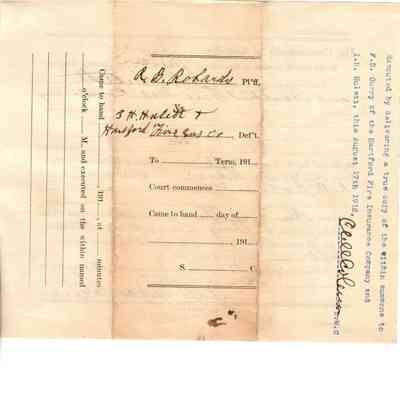 Came to hand ____, 191__, at ____ minutes
____ o'clock ____ M., and executed on the within named
R. D. Robards Pl'ff.
I. H. Hulett &
Hartford Fire Ins Co Def't.
To ____ Term, 191__
Court commences ____
Came to hand ____ day of ____
____, 191__
S. ____ C.
Executed by delivering a true copy of the within summons to
F.D. Curry of the Hartford Fire Insurance Company and
I.H. Hulett, this August 17th 1912.